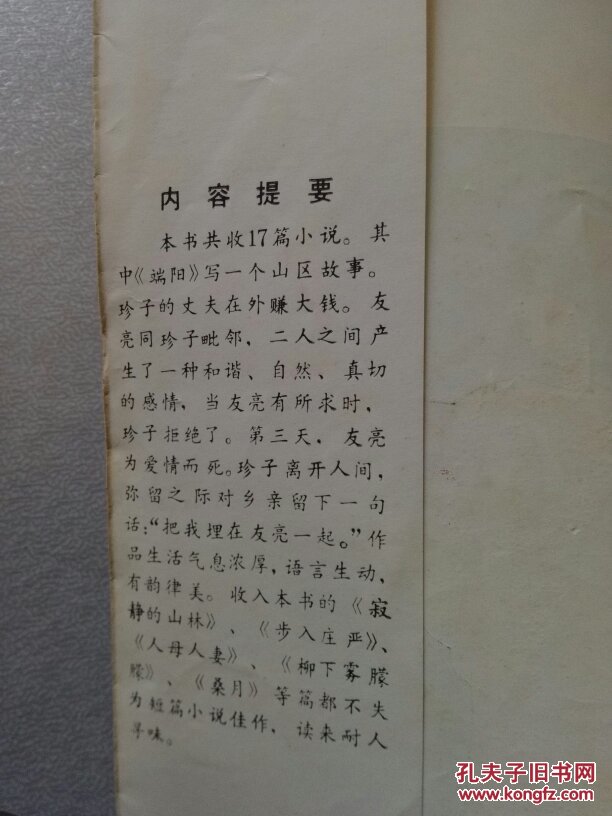 内容提要
本书共收17篇小说。其
中《端阳》写一个山区故事。
珍子的丈夫在外赚大钱。友
亮同珍子毗邻，二人之间产
生了一种和谐、自然、真切
的感情，当友亮有所求时，
珍子拒绝了。第三天，友亮
为爱情而死。珍子离开人间，
弥留之际对乡亲留下一句
话：“把我埋在友亮一起。”作
品生活气息浓厚，语言生动，
有韵律美。收入本书的《寂
静的山林》、《步入庄严》、
《人母人妻》、《柳下雾朦
朦》、《桑月》等篇都不失
为短篇小说佳作，读来耐人
寻味。
孔夫子旧书网
www.kongfz.com